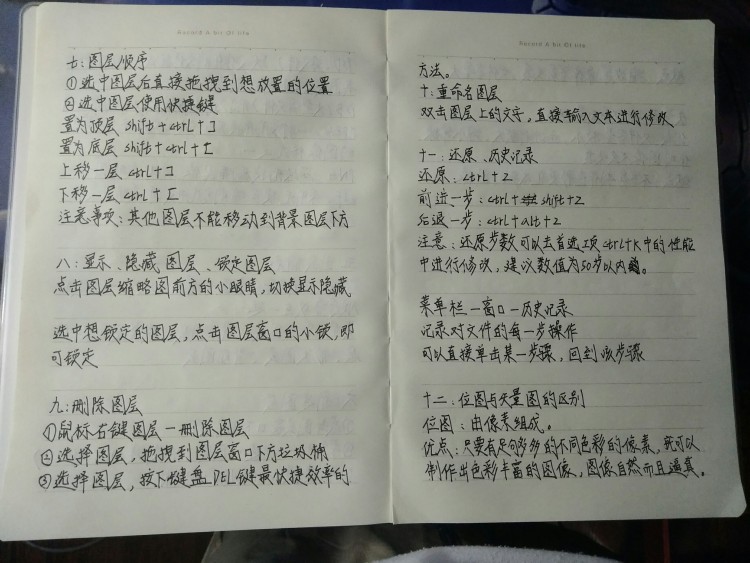 Record A bit Of life
七：图层顺序
①选中图层后直接拖拽到想放置的位置
②选中图层使用快捷键
置为顶层 shift+ctrl+]
置为底层 shift+ctrl+[
上移一层 ctrl+]
下移一层 ctrl+[
注意事项：其他图层不能移动到背景图层下方
八：显示、隐藏图层、锁定图层
点击图层缩略图前方的小眼睛，切换显示隐藏
选中想锁定的图层，点击图层窗口的小锁，即
可锁定
九：删除图层
①鼠标右键图层一删除图层
②选择图层，拖拽到图层窗口下方垃圾桶
③选择图层，按下键盘DEL键最快捷效率的
Record A bit Of life
方法。
十：重命名图层
双击图层上的文字，直接输入文本进行修改
十一：还原、历史记录
还原：ctrl+z
前进一步：ctrl+shift+z
后退一步：ctrl+alt+z
注意：还原步数可以去首选项ctrl+K中的性能
中进行修改，建议数值为50步以内。
菜单栏一窗口一历史记录
记录对文件的每一步操作
可以直接单击某一步骤，回到该步骤
十二：位图与矢量图的区别
位图：由像素组成。
优点：只要有足够多的不同色彩的像素，就可以
制作出色彩丰富的图像，图像自然而且逼真。